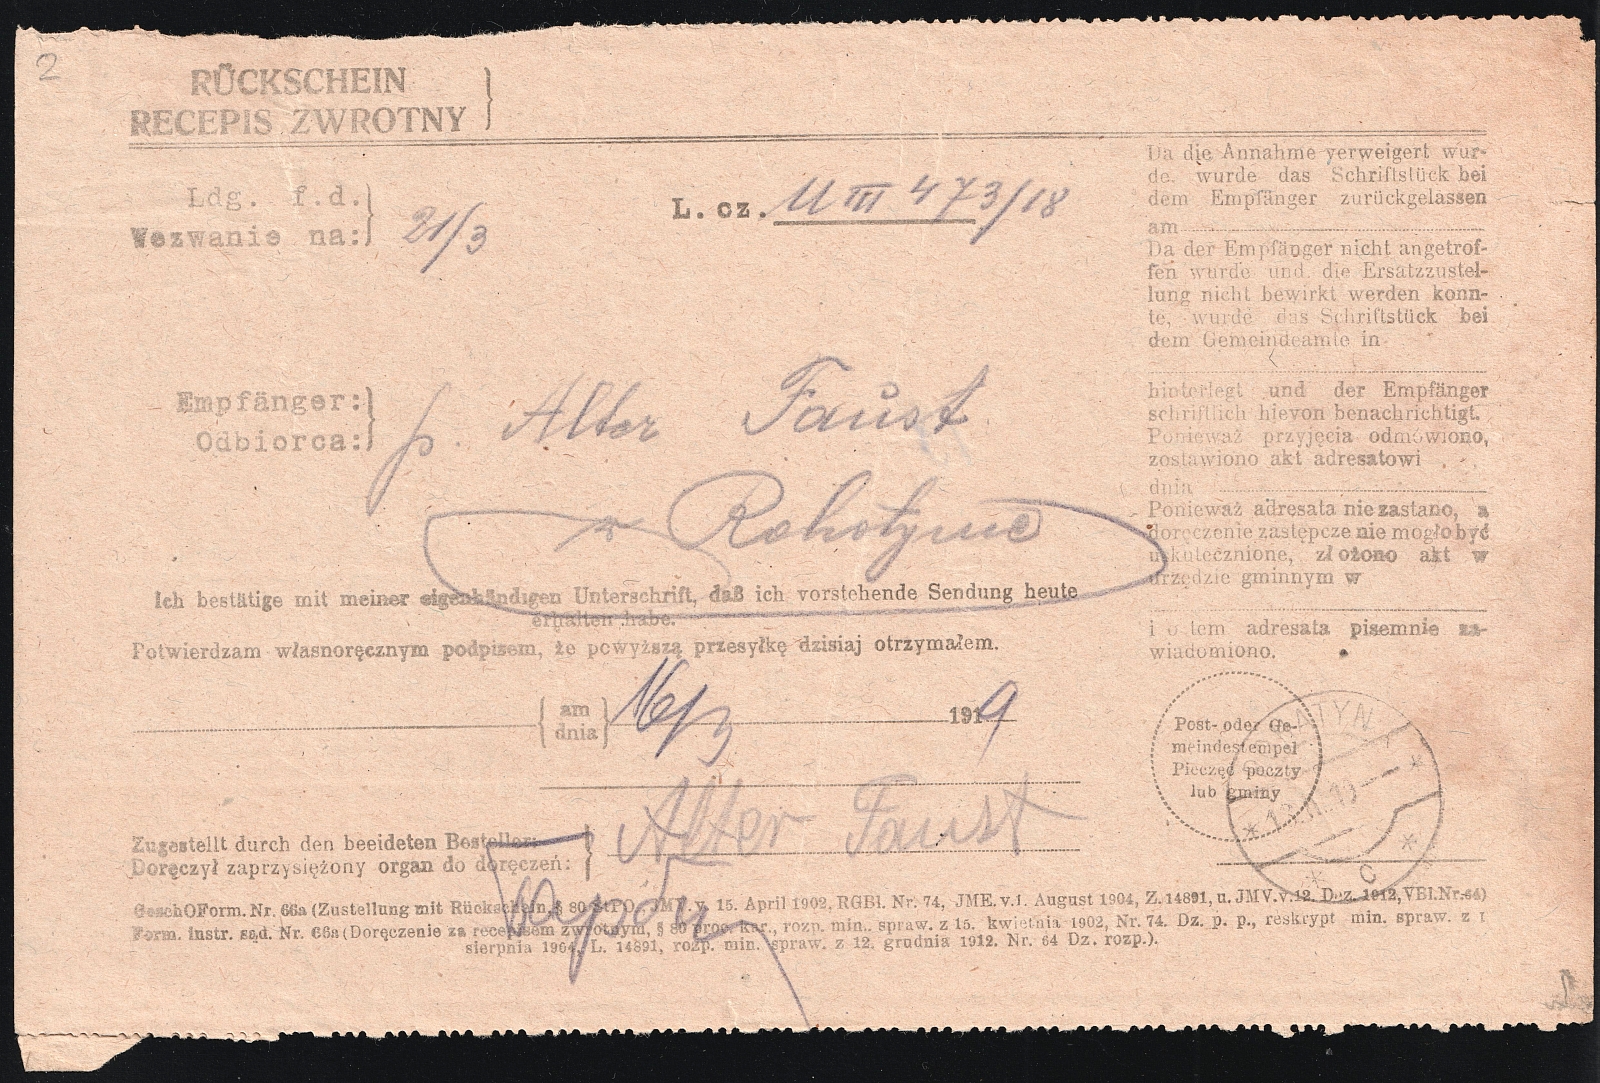 2
RÜCKSCHEIN
RECEPIS ZWROTNY
Ldg. f.d.
Wezwanie na: 21/3
L. cz. U III 473/18
Empfänger:
Odbiorca:
p. Alter Faust
w Rohatynie
Ich bestätige mit meiner eigenhändigen Unterschrift, daß ich vorstehende Sendung heute
erhalten habe.
Potwierdzam własnoręcznym podpisem, że powyższą przesyłkę dzisiaj otrzymałem.
am
dnia
16/3 1919
Alter Faust
Zugestellt durch den beeideten Besteller:
Doręczył zaprzysiężony organ do doręczeń:
GeschOForm. Nr. 66a (Zustellung mit Rückschein, § 80 StPO, JMV. v. 15. April 1902, RGBl. Nr. 74, JME. v. 1. August 1904, Z. 14891, u. JMV. v. 12. Dez. 1912, VBl. Nr. 64)
Form. instr. sąd. Nr. 66a (Doręczenie za recepisem zwrotnym, § 80 proc. kar., rozp. min. spraw. z 15. kwietnia 1902, Nr. 74. Dz. p. p., reskrypt min. spraw. z 1
sierpnia 1904, L. 14891, rozp. min. spraw. z 12. grudnia 1912. Nr. 64 Dz. rozp.).
Da die Annahme verweigert wur-
de. wurde das Schriftstück bei
dem Empfänger zurückgelassen
am
Da der Empfänger nicht angetrof-
fen wurde und die Ersatzzustel-
lung nicht bewirkt werden konn-
te, wurde das Schriftstück bei
dem Gemeindeamte in
hinterlegt und der Empfänger
schriftlich hievon benachrichtigt.
Ponieważ przyjęcia odmówiono,
zostawiono akt adresatowi
dnia
Ponieważ adresata nie zastano, a
doręczenie zastępcze nie mogło być
uskutecznione, złożono akt w
urzędzie gminnym w
i o tem adresata pisemnie za-
wiadomiono.
Post- oder Ge-
meindestempel
Pieczęć poczty
lub gminy
ATYN
C